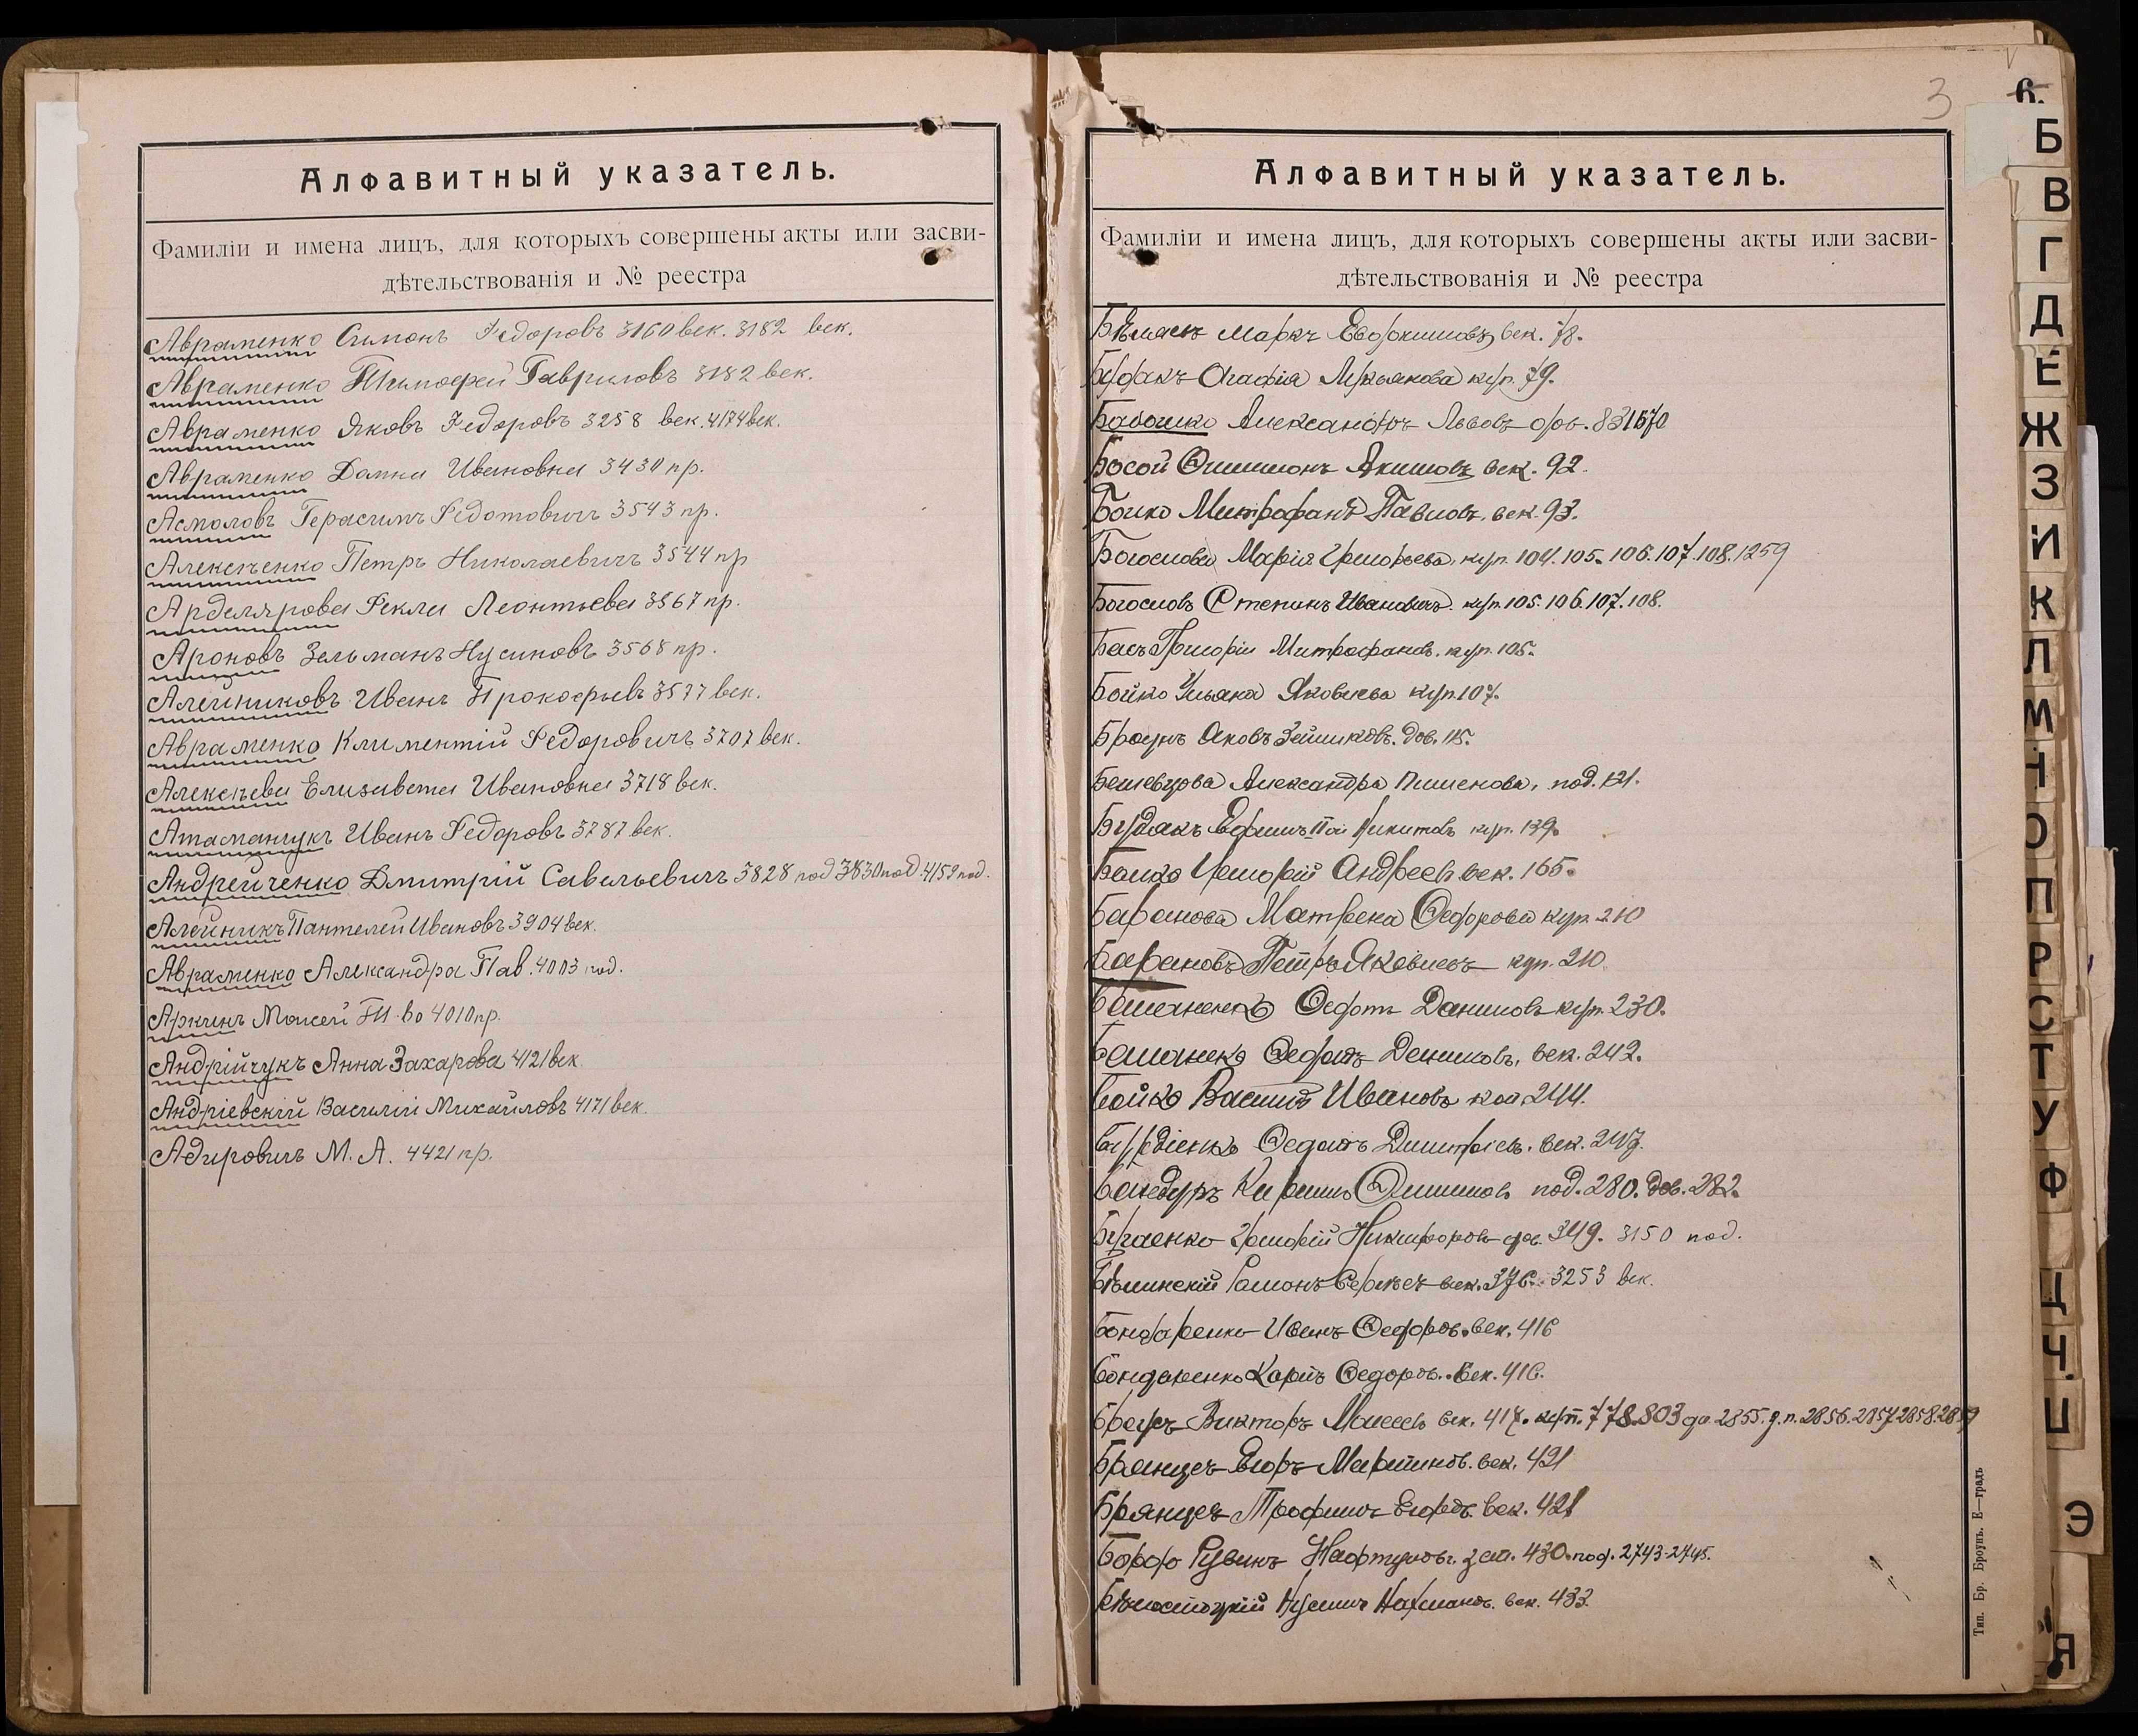 Алфавитный указатель.
Фамиліи и имена лицъ, для которыхъ совершены акты или засви-
дѣтельствованія и № реестра
Авраменко Симонъ Федоровъ 3160 век. 3182 век.
Авраменко Тимофей Гавриловъ 3182 век.
Авраменко Яковъ Федоровъ 3258 век. 4174 век.
Авраменко Домна Ивановна 3430 пр.
Асмоловъ Герасимъ Федотовичъ 3543 пр.
Алексѣенко Петръ Николаевичъ 3544 пр
Арделярова Фекла Леонтьева 3567 пр.
Ароновъ Зельманъ Нусиновъ 3568 пр.
Алейниковъ Иванъ Прокофьевъ 3577 век.
Авраменко Климентій Федоровичъ 3707 век.
Алексѣева Елизавета Ивановна 3718 век.
Атаманчукъ Иванъ Федоровъ 3787 век.
Андрейченко Дмитрій Савельевичъ 3828 под 3830 под. 4159 под.
Алейникъ Пантелей Ивановъ 3904 век.
Авраменко Александра Пав. 4003 под.
Аркинъ Моисей 4010 пр.
Андрійчукъ Анна Захарова 4121 век
Андріевскій Василій Михайловъ 4171 век.
Адировичъ М. А. 4421 пр.
3
Алфавитный указатель.
Фамиліи и имена лицъ, для которыхъ совершены акты или засви-
дѣтельствованія и № реестра
Маркъ Евдокимовъ век. 78.
Агафія Лукьянова куп. 79.
Бабошко Александръ Львовъ 831
Босой Филимонъ Акимовъ век. 92.
Бойко Митрофанъ Павловъ. век. 93.
Богослова Марія Григорьева. куп. 104. 105. 106. 107. 108. 1259
Богословъ Степанъ Ивановичъ. куп. 105. 106. 107. 108.
Басъ Григорій Митрофановъ. куп. 105.
Бойко Ульяна Яковлева куп. 107.
Браунъ Яковъ дов. 115.
Бешевцова Александра под. 121.
Будякъ Ефимъ Никитовъ куп. 139.
Бойко Григорій Андреевъ век. 165.
Баранова Матрена Федорова куп. 210
Барановъ Петръ Яковлевъ куп. 210.
Федотъ Даниловъ куп. 230.
Федотъ Даниловъ, век. 242.
Бойко Василій Ивановъ 244.
Бурдіенко Федотъ Дмитріевъ. век. 247.
Бандуръ под. 280. дов. 282.
Григорій Никифоровъ 349. 3150 под.
Бѣлинскій Самонъ Сергѣевъ век. 376. 3253 век.
Бондаренко Иванъ Федоров. век. 416
Бондаренко Карпъ Федоров. век. 416.
Брауръ Викторъ Моисеевъ век. 417. куп. 778. 803 2855. 2856. 2857 2858. 2859
Брянцевъ Егоръ Мартынов. век. 421
Брянцевъ Трофимъ Егоров. век. 421
Рувинъ Нафтуловъ. 430. под. 2743-2745.
Бѣлоцтоцкій Нусимъ Нахманов. век. 433.
Тип. Бр. Броунъ. Е—градъ
Б
В
Г
Д
Е
Ж
З
И
К
Л
М
Н
О
П
Р
С
Т
У
Ф
Ц
Ч.
Э
Я